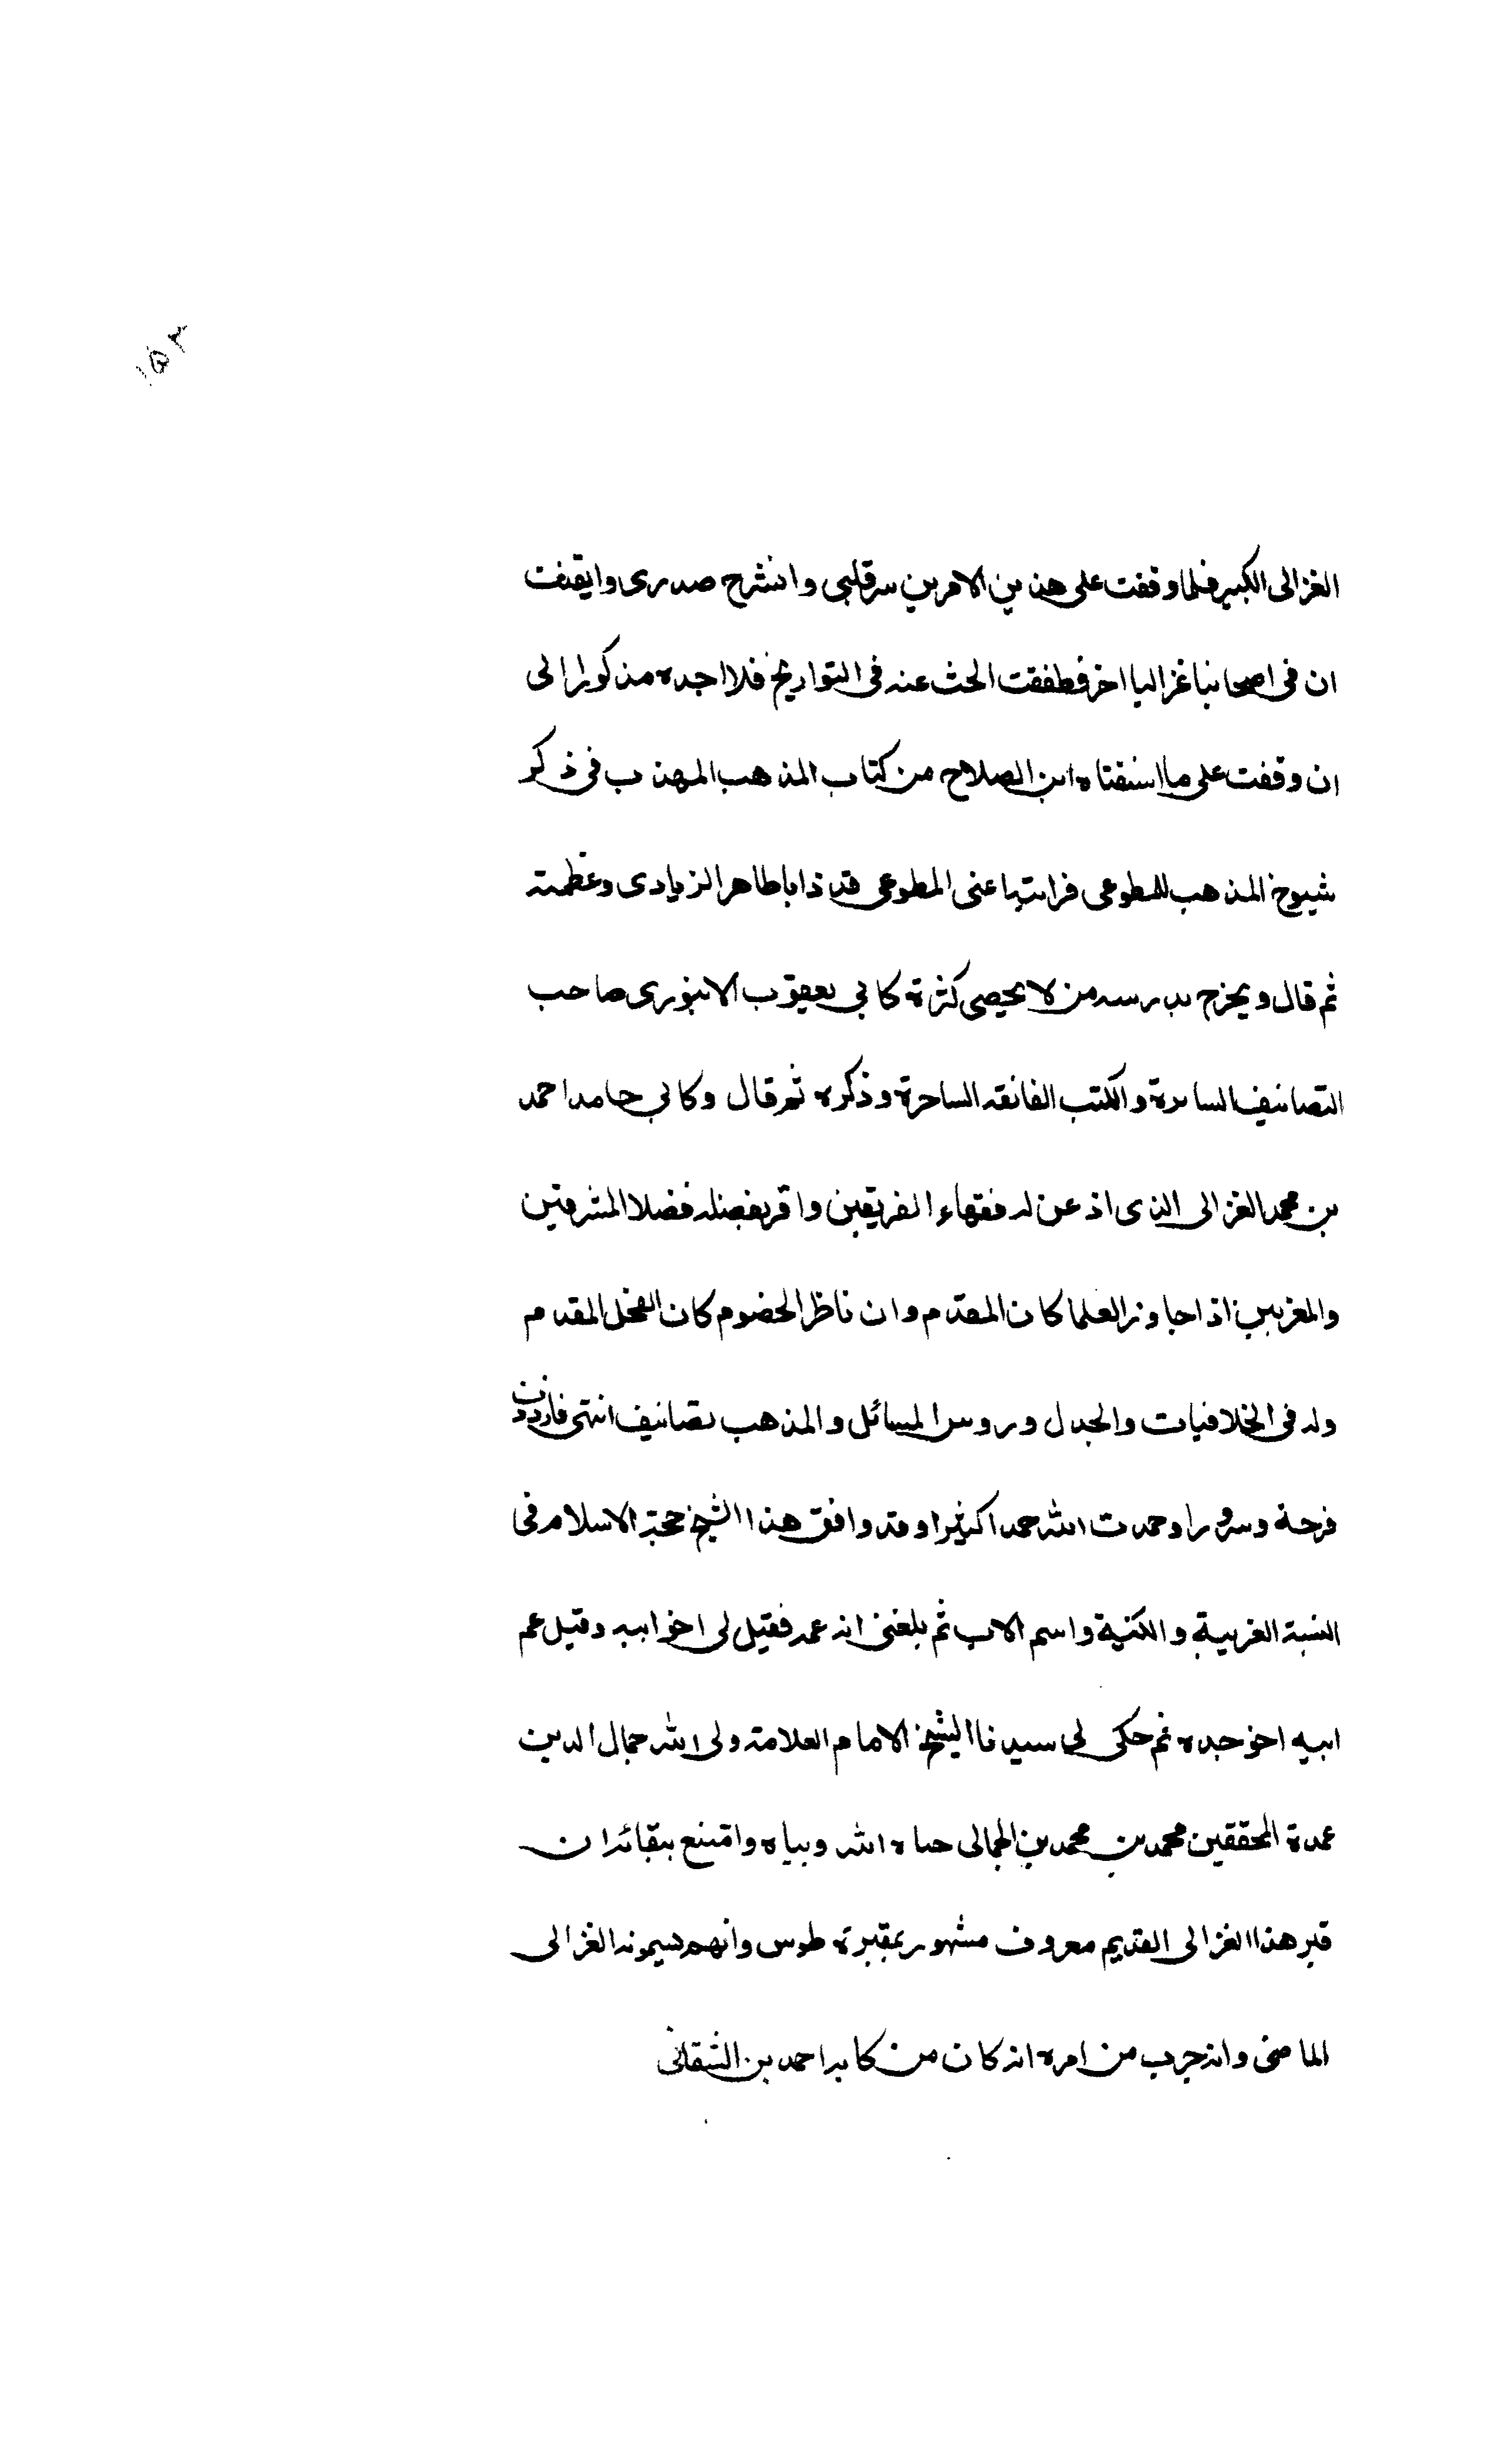 ١٥٣
الغزالى الكبير فلما وقفت على هذين الامرين سر قلبى وانشرح صدرى وايقنت
ان فى اصحابنا غزاليا اخر فطفقت ابحث عنه فى التواريخ فلا اجده مذكورا الى
ان وقفت على ما انتقاه ابن الصلاح من كتاب المذهب المهذب فى ذكر
شيوخ المذهب للمطوعى فرايت اعنى المطوعى قد ذ اباطاهر الزيادى وعظمته
ثم قال ويخرج بدرسه من لا يحصى كثرة كابى يعقوب الابيوردى صاحب
التصانيف السايرة والكتب الفائقه الساحرة وذكره ثم قال وكابي حامد احمد
بن محمد الغزالى الذى اذعن له فقهاء الفريقين واقر بفضله فضلا المشرقين
والمغربين اذا حاور العلما كان المقدم وان ناظر الخصوم كان الفحل المقدم
وله فى الخلافيات والجدل ورؤس المسائل والمذهب تصانيف انتهى فازددت
فرحة وسرورا وحمدت الله حمدا كثيرا وقد وافق هذا الشيخ حجة الاسلام فى
النسبة الغريبة والكنية واسم الاب ثم بلغنى انه عمه فقيل لى اخو ابيه وقيل عم
ابيه اخو جده ثم حكى لى سيدنا الشيخ الامام العلامة ولى الله جمال الدين
عمدة المحققين محمد بن محمد بن الجمالى حياه الله وبياه وامتع ببقائه ان
قبر هذا الغزالى القديم معروف مشهور بمقبرة طوس وانهم يسمونه الغزالى
الماضى وانه جرب من امره انه كان من كا به احمد بن